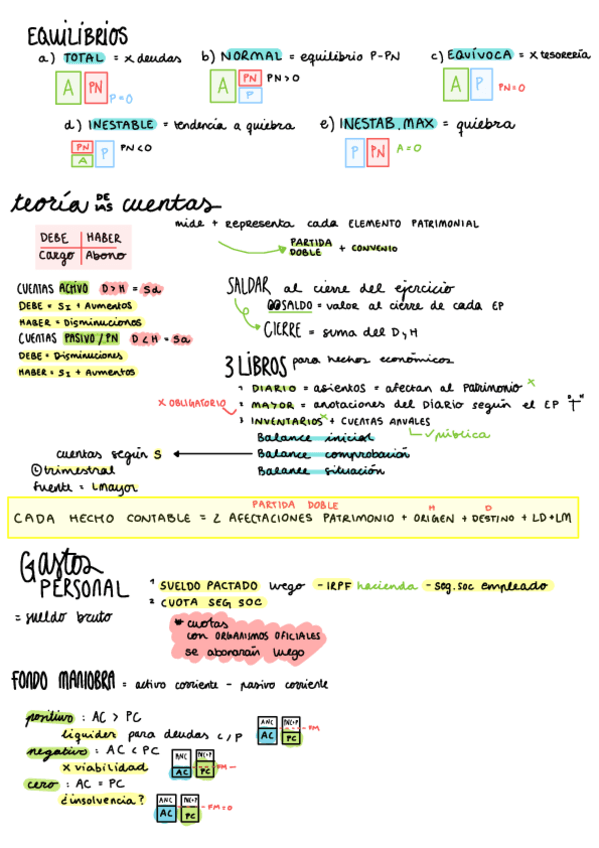 EQUILIBRIOS
a) TOTAL = x deudas
A PN P=0
b) NORMAL = equilibrio P-PN
A PN P PN>0
c) EQUÍVOCA = x tesorería
A P PN=0
d) INESTABLE = tendencia a quiebra
PN A P PN<0
e) INESTAB.MAX = quiebra
P PN A=0
teoría DE LAS cuentas
mide + representa cada ELEMENTO PATRIMONIAL
PARTIDA DOBLE + CONVENIO
DEBE HABER
Cargo Abono
CUENTAS ACTIVO D>H = Sd
DEBE = SI + Aumentos
HABER = Disminuciones
CUENTAS PASIVO/PN D<H = Sa
DEBE = Disminuciones
HABER = SI + Aumentos
SALDAR al cierre del ejercicio
SALDO = valor al cierre de cada EP
CIERRE = suma del D y H
3 LIBROS para hechos económicos
1 DIARIO = asientos = afectan al patrimonio x
x OBLIGATORIO
2 MAYOR = anotaciones del Diario según el EP "T"
3 INVENTARIOS x + CUENTAS ANUALES
✓ pública
Balance inicial
Balance comprobación
Balance situación
cuentas según S
trimestral
fuente = LMayor
PARTIDA DOBLE H D
CADA HECHO CONTABLE = 2 AFECTACIONES PATRIMONIO + ORIGEN + DESTINO + LD+LM
Gastos PERSONAL
= sueldo bruto
1 SUELDO PACTADO luego - IRPF hacienda - seg.soc empleado
2 CUOTA SEG SOC
* cuotas
con ORGANISMOS OFICIALES
se abonarán luego
FONDO MANIOBRA = activo corriente - pasivo corriente
positivo : AC > PC
liquidez para deudas c/p
ANC AC PNC+P PC FM
negativo : AC < PC
x viabilidad
ANC AC PNC+P PC FM -
cero : AC = PC
¿insolvencia?
ANC AC PNC+P PC FM=0